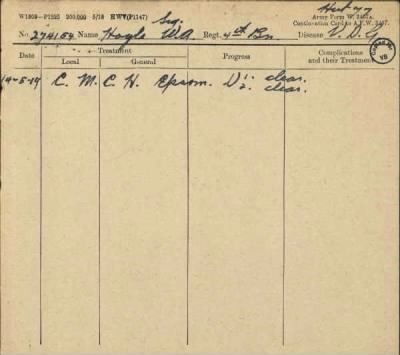 W1809—P1525 200,000 5/18 HWV(P1147)
Army Form W. 3401a.
Continuation Card to A.F.W. 3407.
Sig.
No. 274154 Name Hoyle W.A. Regt. 4th Bn Disease V. D. G
Date
Treatment
Local
General
Progress
Complications
and their Treatment
14-5-19 C. M. C. H. Epsom. V 1: clear.
2: clear.